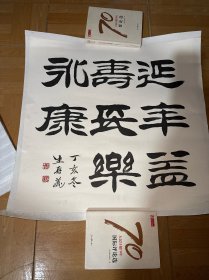 延年益
壽長樂
永康
丁亥冬
70
70